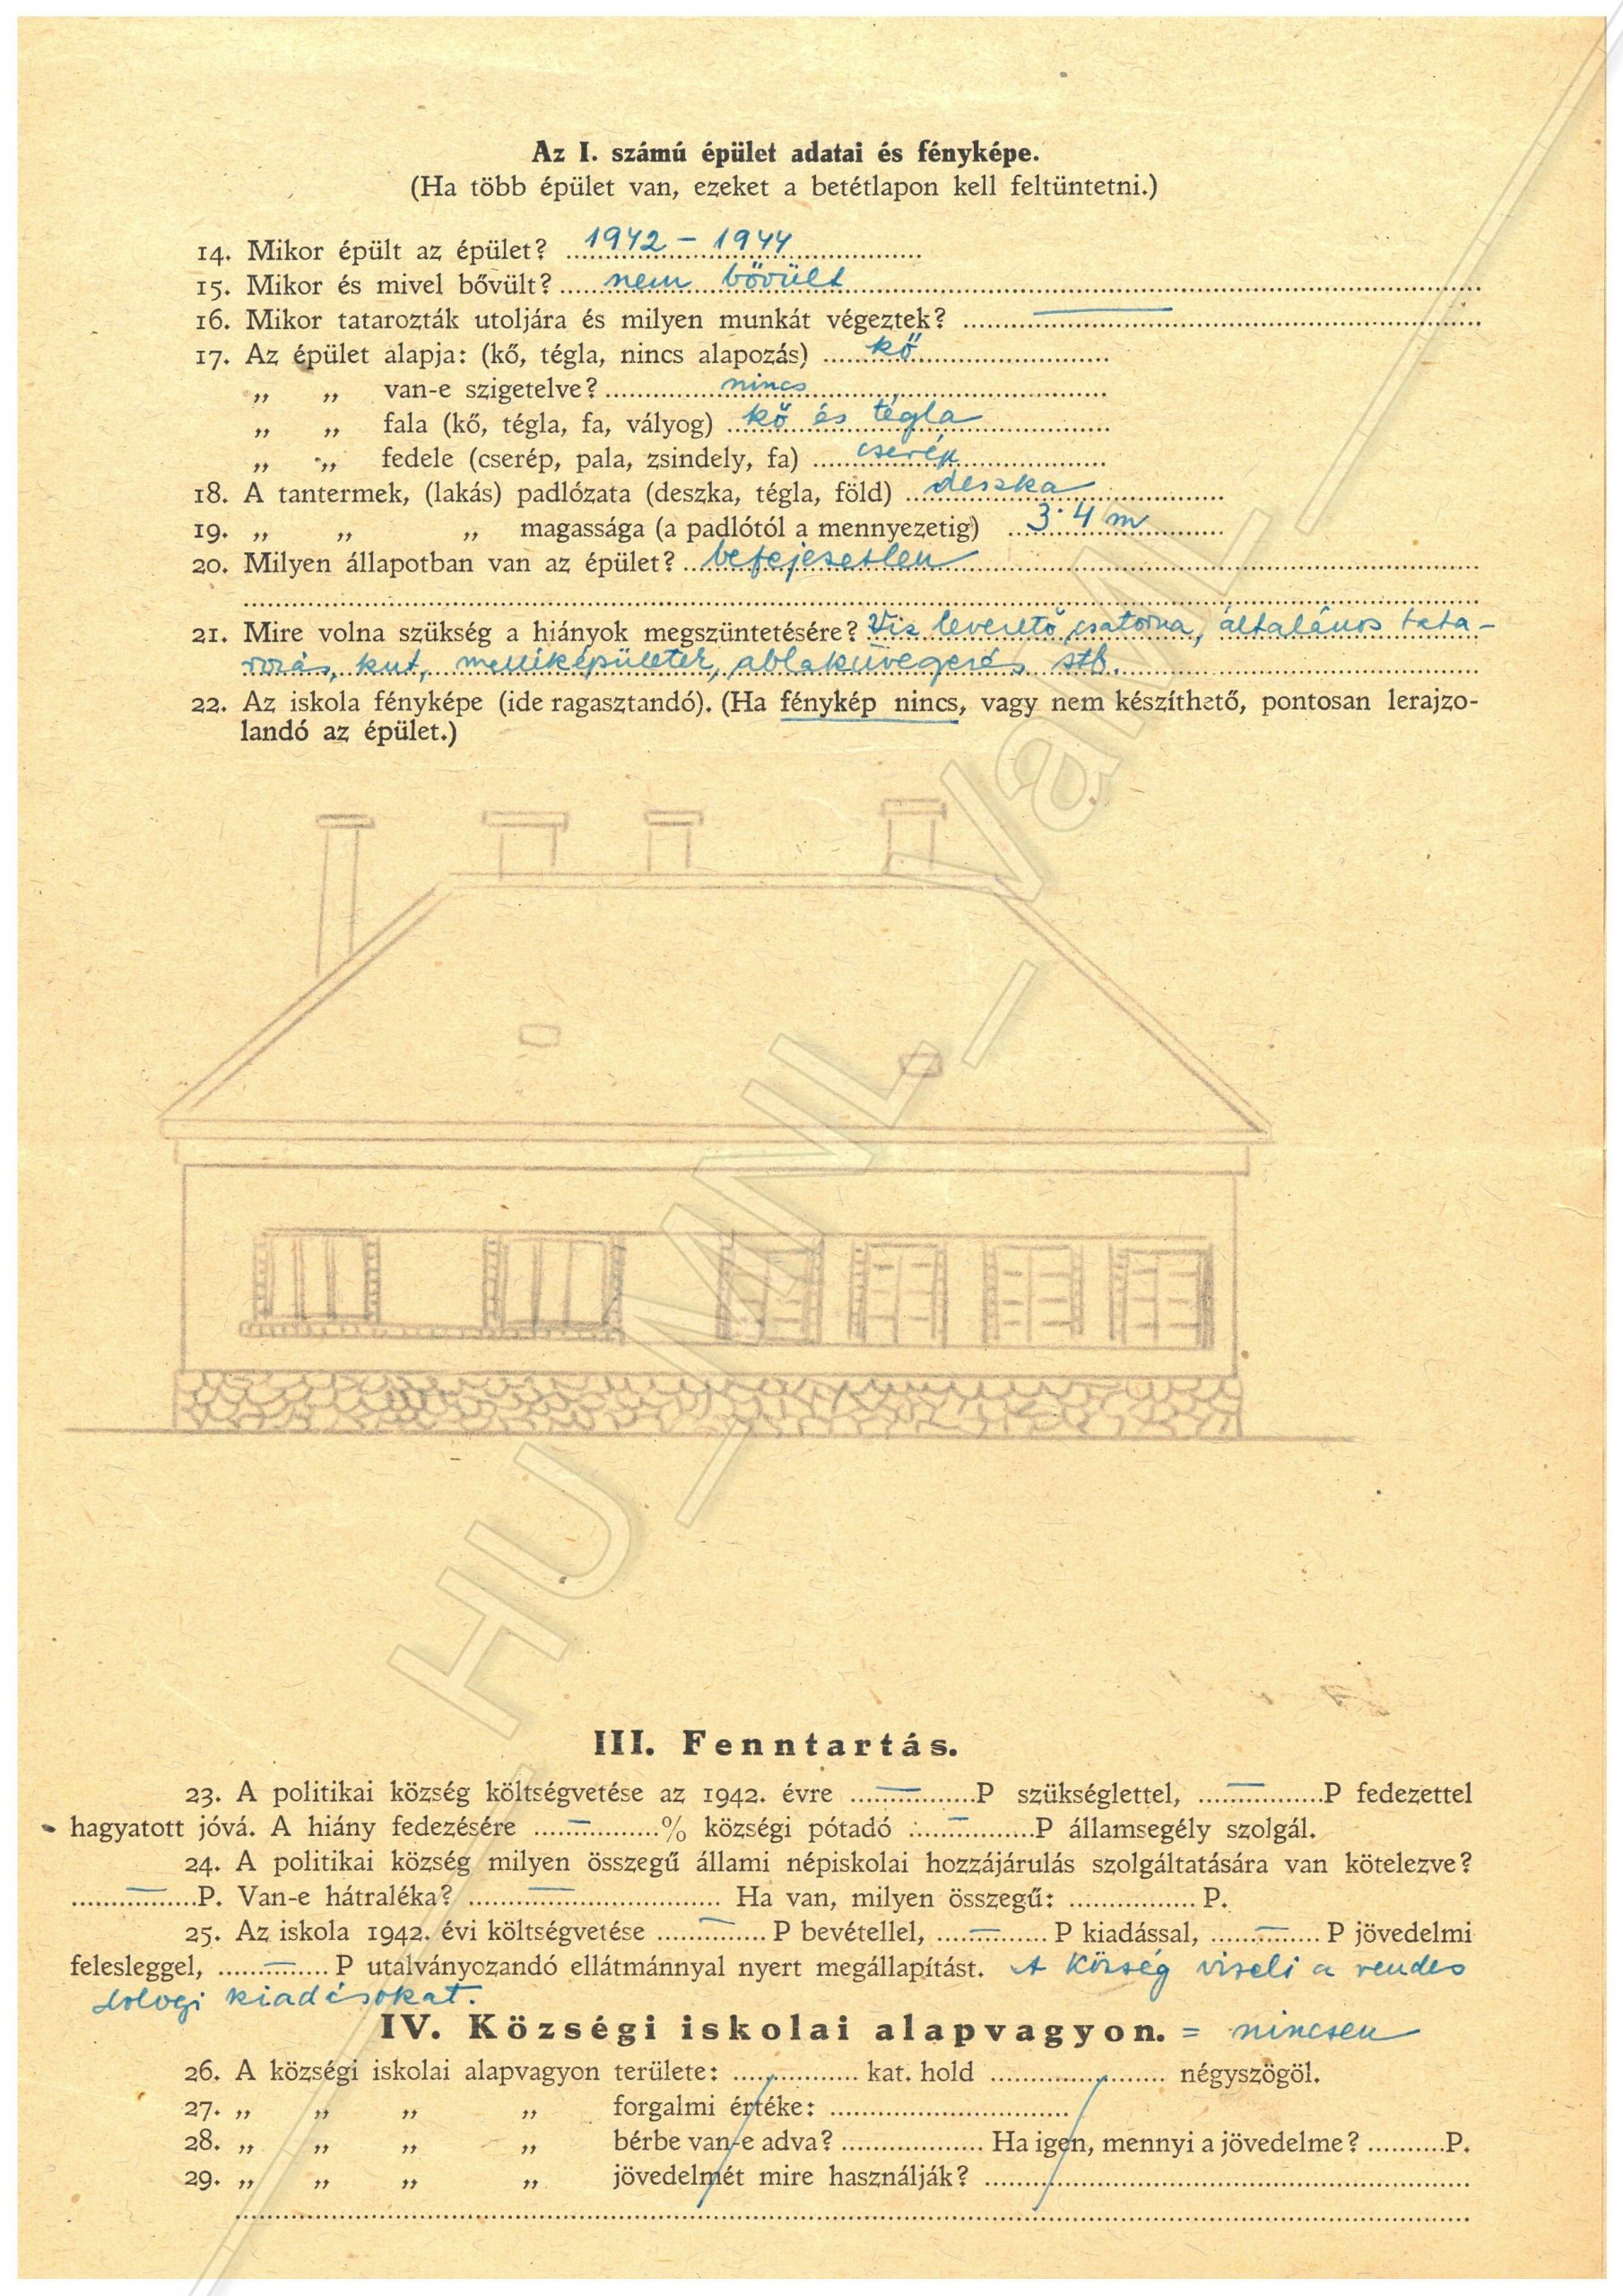 Az I. számú épület adatai és fényképe.
(Ha több épület van, ezeket a betétlapon kell feltüntetni.)
14. Mikor épült az épület? 1942 – 1944
15. Mikor és mivel bővült? nem bővült
16. Mikor tatarozták utoljára és milyen munkát végeztek? —
17. Az épület alapja: (kő, tégla, nincs alapozás) kő
„ „ van-e szigetelve? nincs
„ „ fala (kő, tégla, fa, vályog) kő és tégla
„ „ fedele (cserép, pala, zsindely, fa) cserép
18. A tantermek, (lakás) padlózata (deszka, tégla, föld) deszka
19. „ „ „ magassága (a padlótól a mennyezetig) 3·4 m
20. Milyen állapotban van az épület? befejezetlen
21. Mire volna szükség a hiányok megszüntetésére? Víz levezető csatorna, általános tata-
rozás, kut, melléképületek, ablaküvegezés stb.
22. Az iskola fényképe (ide ragasztandó). (Ha fénykép nincs, vagy nem készíthető, pontosan lerajzo-
landó az épület.)
HU_MNL_VaML_
III. Fenntartás.
23. A politikai község költségvetése az 1942. évre — P szükséglettel, — P fedezettel
hagyatott jóvá. A hiány fedezésére — % községi pótadó — P államsegély szolgál.
24. A politikai község milyen összegű állami népiskolai hozzájárulás szolgáltatására van kötelezve?
— P. Van-e hátraléka? — Ha van, milyen összegű: P.
25. Az iskola 1942. évi költségvetése — P bevétellel, — P kiadással, — P jövedelmi
felesleggel, — P utalványozandó ellátmánnyal nyert megállapítást. A Község viseli a rendes
dologi kiadásokat.
IV. Községi iskolai alapvagyon. = nincsen
26. A községi iskolai alapvagyon területe: kat. hold négyszögöl.
27. „ „ „ „ forgalmi értéke:
28. „ „ „ „ bérbe van-e adva? Ha igen, mennyi a jövedelme? P.
29. „ „ „ „ jövedelmét mire használják?